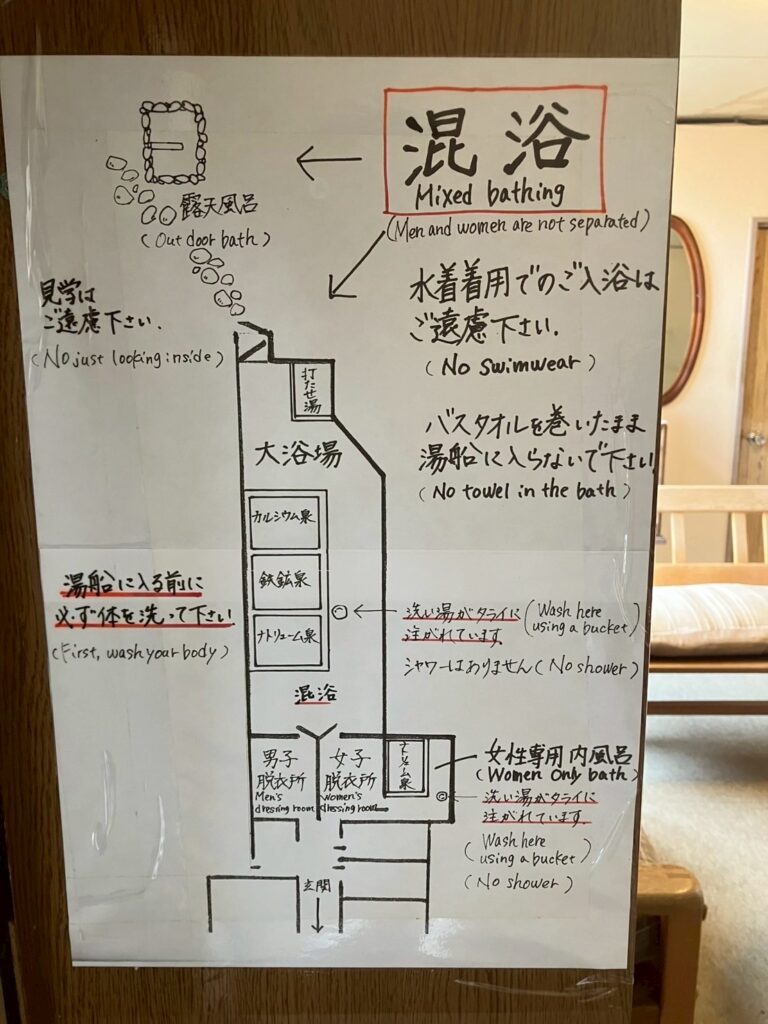 混浴
Mixed bathing
(Men and women are not separated)
露天風呂
(Out door bath)
見学は
ご遠慮下さい.
(No just looking inside)
水着着用でのご入浴は
ご遠慮下さい.
(No swimwear)
バスタオルを巻いたまま
湯船に入らないで下さい
(No towel in the bath)
打たせ湯
大浴場
カルシウム泉
鉄鉱泉
ナトリューム泉
混浴
湯船に入る前に
必ず体を洗って下さい
(First, wash your body)
洗い湯がタライに
注がれています.
(Wash here
using a bucket)
シャワーはありません (No shower)
男子
脱衣所
Men's
dressing room
女子
脱衣所
Women's
dressing room
ナトリューム泉
女性専用内風呂
(Women Only bath)
洗い湯がタライに
注がれています.
(Wash here
using a bucket)
(No shower)
玄関